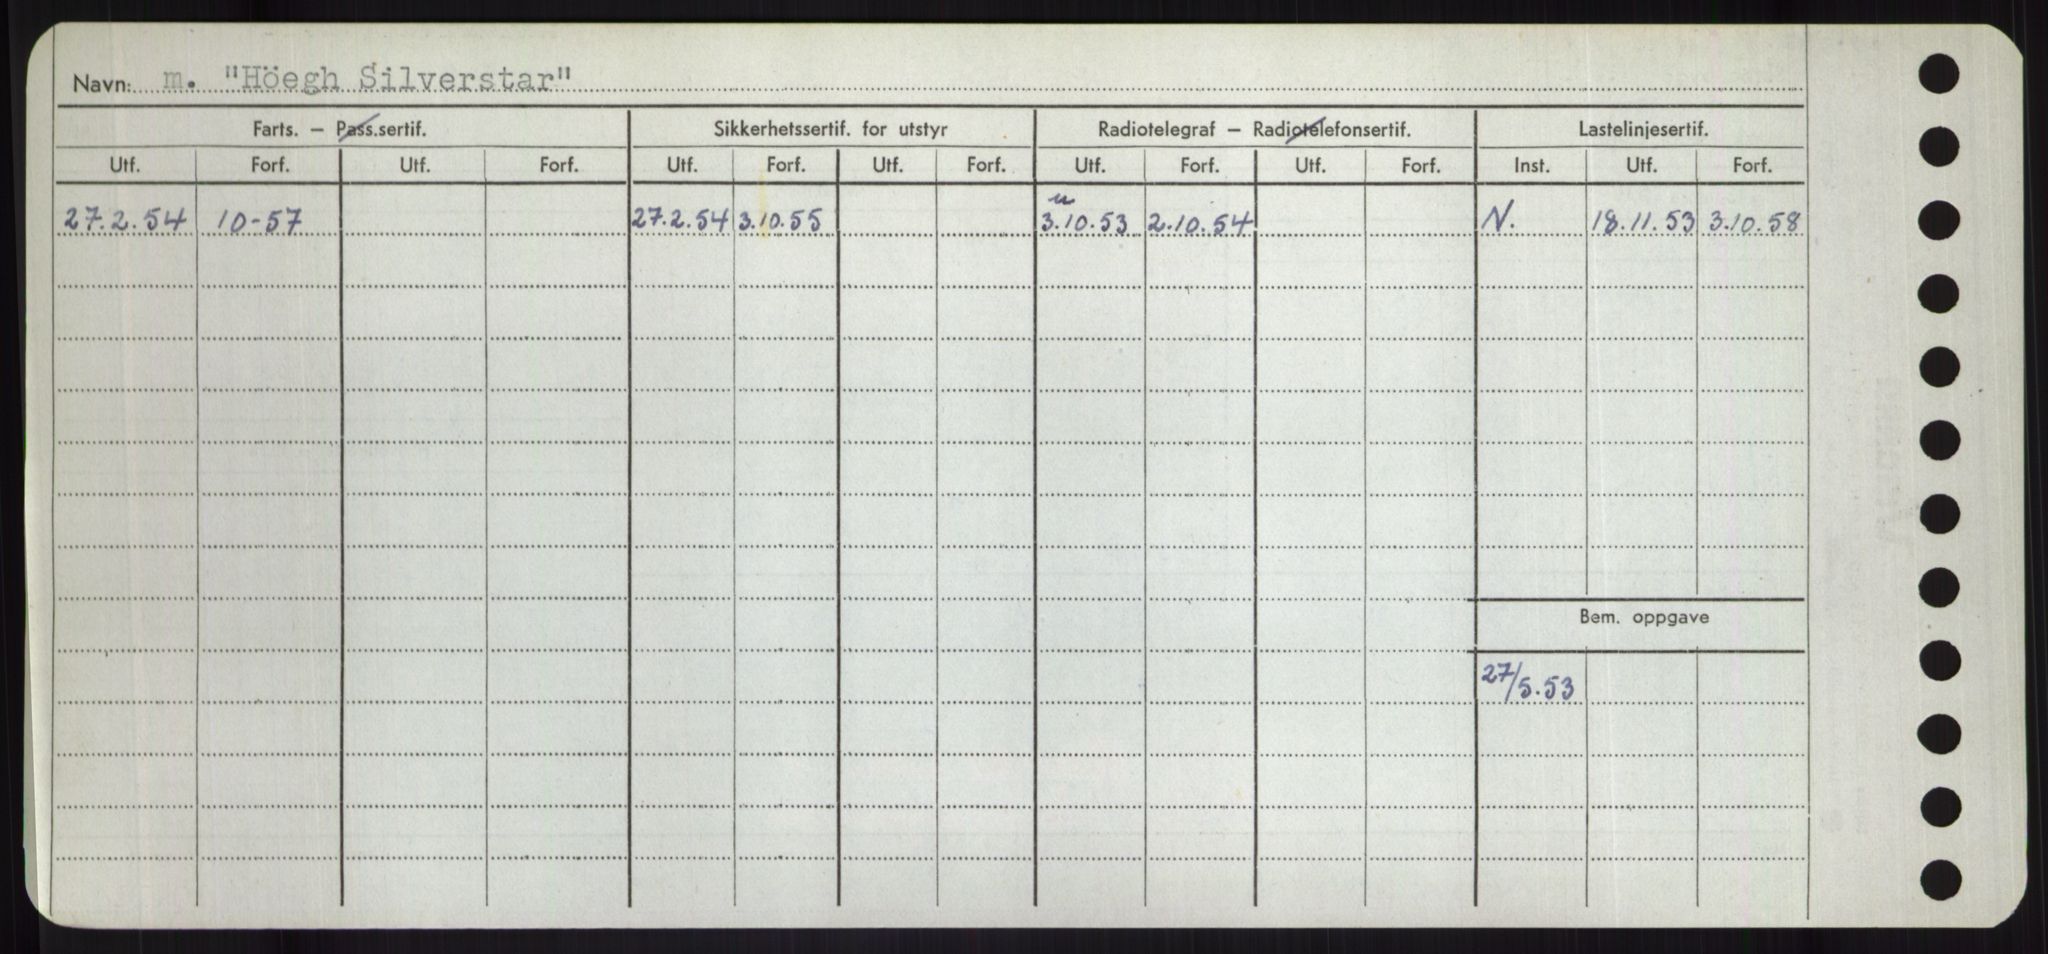 Navn: m. "Höegh Silverstar"
Farts. – Pass.sertif. Sikkerhetssertif. for utstyr Radiotelegraf – Radiotelefonsertif. Lastelinjesertif.
Utf. Forf. Utf. Forf. Utf. Forf. Utf. Forf. Utf. Forf. Utf. Forf. Inst. Utf. Forf.
27.2.54 10-57 27.2.54 3.10.55 3.10.53 2.10.54 N. 18.11.53 3.10.58
Bem. oppgave
27/5.53